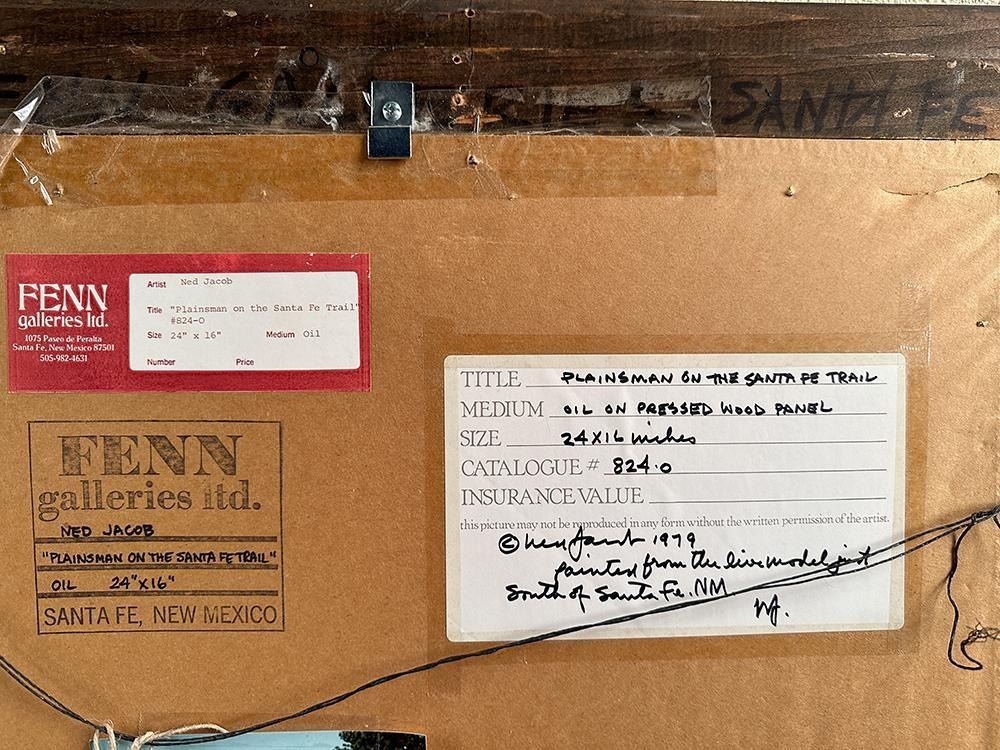 SANTA FE
FENN
galleries ltd.
1075 Paseo de Peralta
Santa Fe, New Mexico 87501
505-982-4631
Artist Ned Jacob
Title "Plainsman on the Santa Fe Trail"
#824-O
Size 24" x 16" Medium Oil
Number Price
FENN
galleries ltd.
NED JACOB
"PLAINSMAN ON THE SANTA FE TRAIL"
OIL 24"X16"
SANTA FE, NEW MEXICO
TITLE PLAINSMAN ON THE SANTA FE TRAIL
MEDIUM OIL ON PRESSED WOOD PANEL
SIZE 24X16 inches
CATALOGUE # 824.0
INSURANCE VALUE
this picture may not be reproduced in any form without the written permission of the artist.
© Ned Jacob 1979
painted from the live model just
South of Santa Fe. NM
NJ.